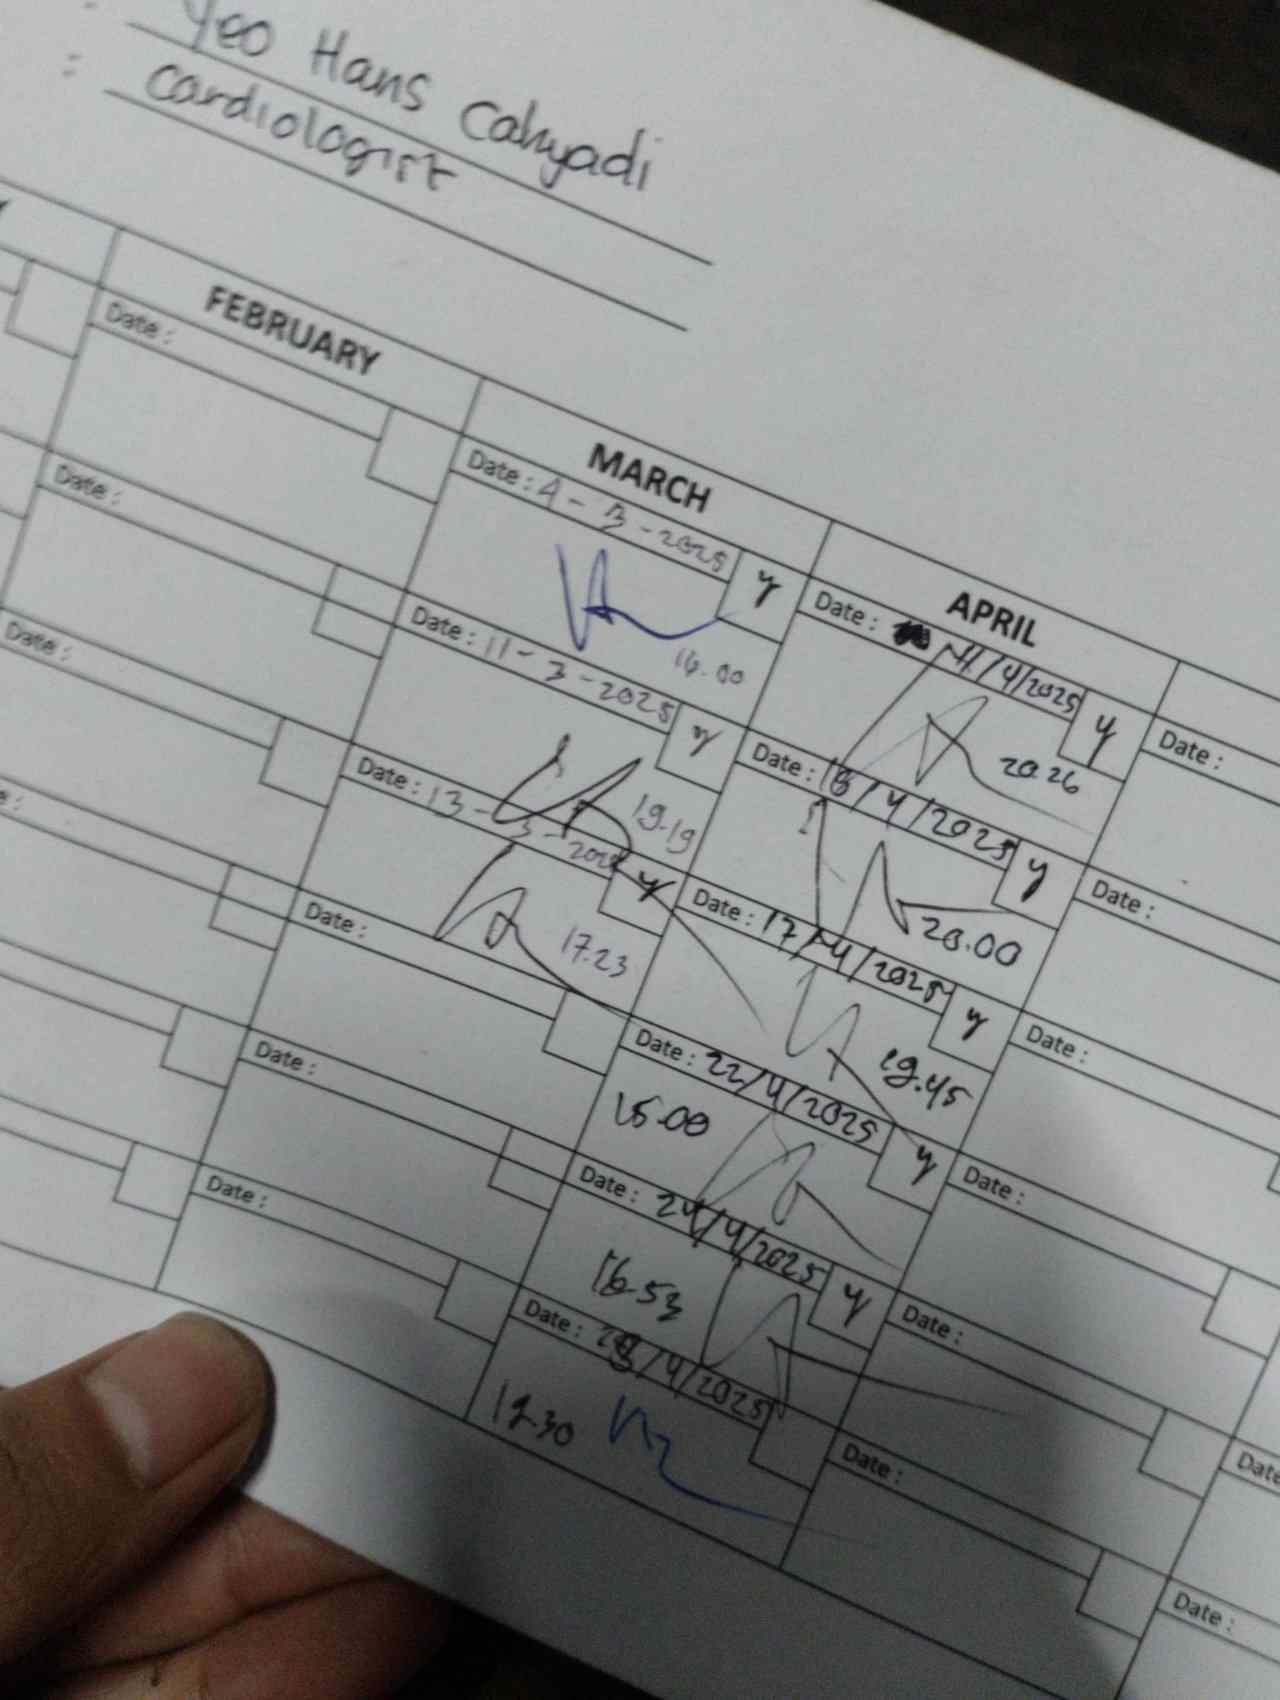 : Yeo Hans Cahyadi
: Cardiologist
FEBRUARY
Date :
Date :
Date :
MARCH
Date : 4 - 3 - 2025 y
16.00
Date : 11 - 3 - 2025 y
19.19
Date : 13 - 3 - 2025 y
17.23
Date :
Date :
Date :
APRIL
Date : /4/2025 y
20.26
Date : /4/2025 y
20.00
Date : 17/4/2025 y
19.45
Date : 22/4/2025 y
15.00
Date : 24/4/2025 y
16.53
Date : /4/2025
19.30
Date :
Date :
Date :
Date :
Date :
Date :
Date
Date :